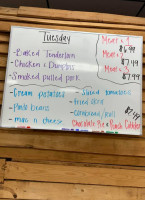 Tuesday
- Baked Tenderloin
- Chicken & Dumplins
- Smoked pulled pork
Meat & 2
$6.49
Meat & 3
$7.49
- Cream potatoes
- Pinto beans
- mac n cheese
- Stewed tomatoes
- fried okra
- Cornbread/roll
Chocolate Pie & Peach Cobbler